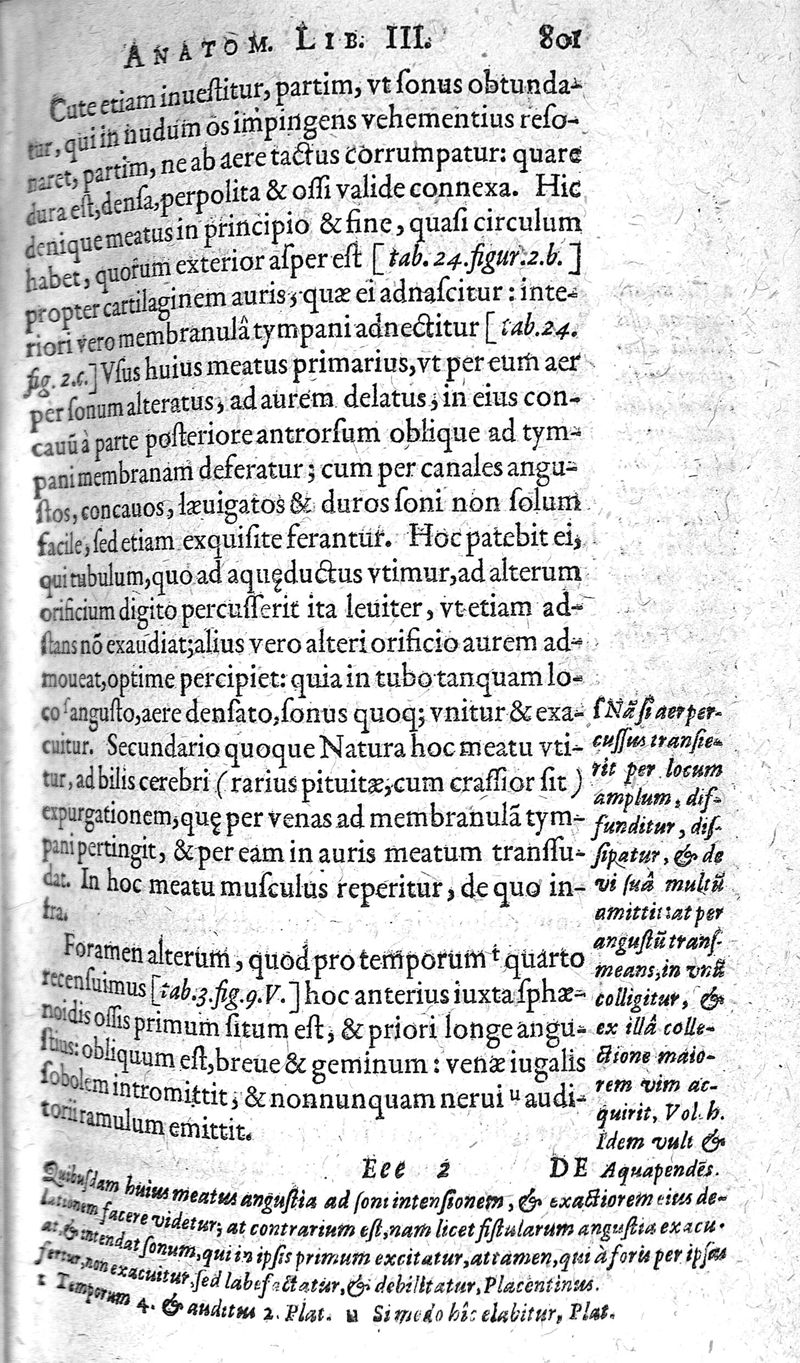 ANATOM. LIB. III. 801
Cute etiam inuestitur, partim, vt sonus obtunda-
tur, qui in nudum os impingens vehementius reso-
naret, partim, ne ab aere tactus corrumpatur: quare
dura est, densa, perpolita & ossi valide connexa. Hic
denique meatus in principio & fine, quasi circulum
habet, quorum exterior asper est [tab. 24. figur. 2. b.]
propter cartilaginem auris, quæ ei adnascitur: inte-
riori vero membranulâ tympani adnectitur [tab. 24.
fig. 2. c.] Vsus huius meatus primarius, vt per eum aer
per sonum alteratus, ad aurem delatus, in eius con-
cauũ à parte posteriore antrorsum oblique ad tym-
pani membranam deferatur; cum per canales angu-
stos, concauos, læuigatos & duros soni non solum
facile, sed etiam exquisite ferantur. Hoc patebit ei,
qui tubulum, quo ad aquęductus vtimur, ad alterum
orificium digito percusserit ita leuiter, vt etiam ad-
stans nõ exaudiat; alius vero alteri orificio aurem ad-
moueat, optime percipiet: quia in tubo tanquam lo-
co ſ angusto, aere densato, sonus quoq; vnitur & exa-
cuitur. Secundario quoque Natura hoc meatu vti-
tur, ad bilis cerebri (rarius pituitæ, cum crassior sit)
expurgationem, quę per venas ad membranulã tym-
pani pertingit, & per eam in auris meatum transsu-
dat. In hoc meatu musculus reperitur, de quo in-
fra.
Foramen alterum, quod pro temporum t quarto
recensuimus [tab. 3. fig. 9. V.] hoc anterius iuxta sphæ-
noidis ossis primum situm est, & priori longe angu-
stius: obliquum est, breue & geminum: venæ iugalis
sobolem intromittit, & nonnunquam nerui u audi-
torii ramulum emittit.
ſ Nã si aer per-
cussus transie-
rit per locum
amplum, dif-
funditur, dis-
sipatur, & de
vi suâ multũ
amittit: at per
angustũ trans-
means, in vnũ
colligitur, &
ex illâ colle-
ctione maio-
rem vim ac-
quirit, Vol. h.
Idem vult &
Aquapendẽs.
Eee 2 DE
Quibusdam huius meatus angustia ad soni intensionem, & exactiorem eius de-
lationem facere videtur; at contrarium est, nam licet fistularum angustia exacu-
at, & intendat sonum, qui in ipsis primum excitatur, attamen, qui à foris per ipsas
fertur, non exacuitur sed labefactatur, & debilitatur, Placentinus.
t Temporum 4. & auditus 2. Plat. u Simedo hîc elabitur, Plat.